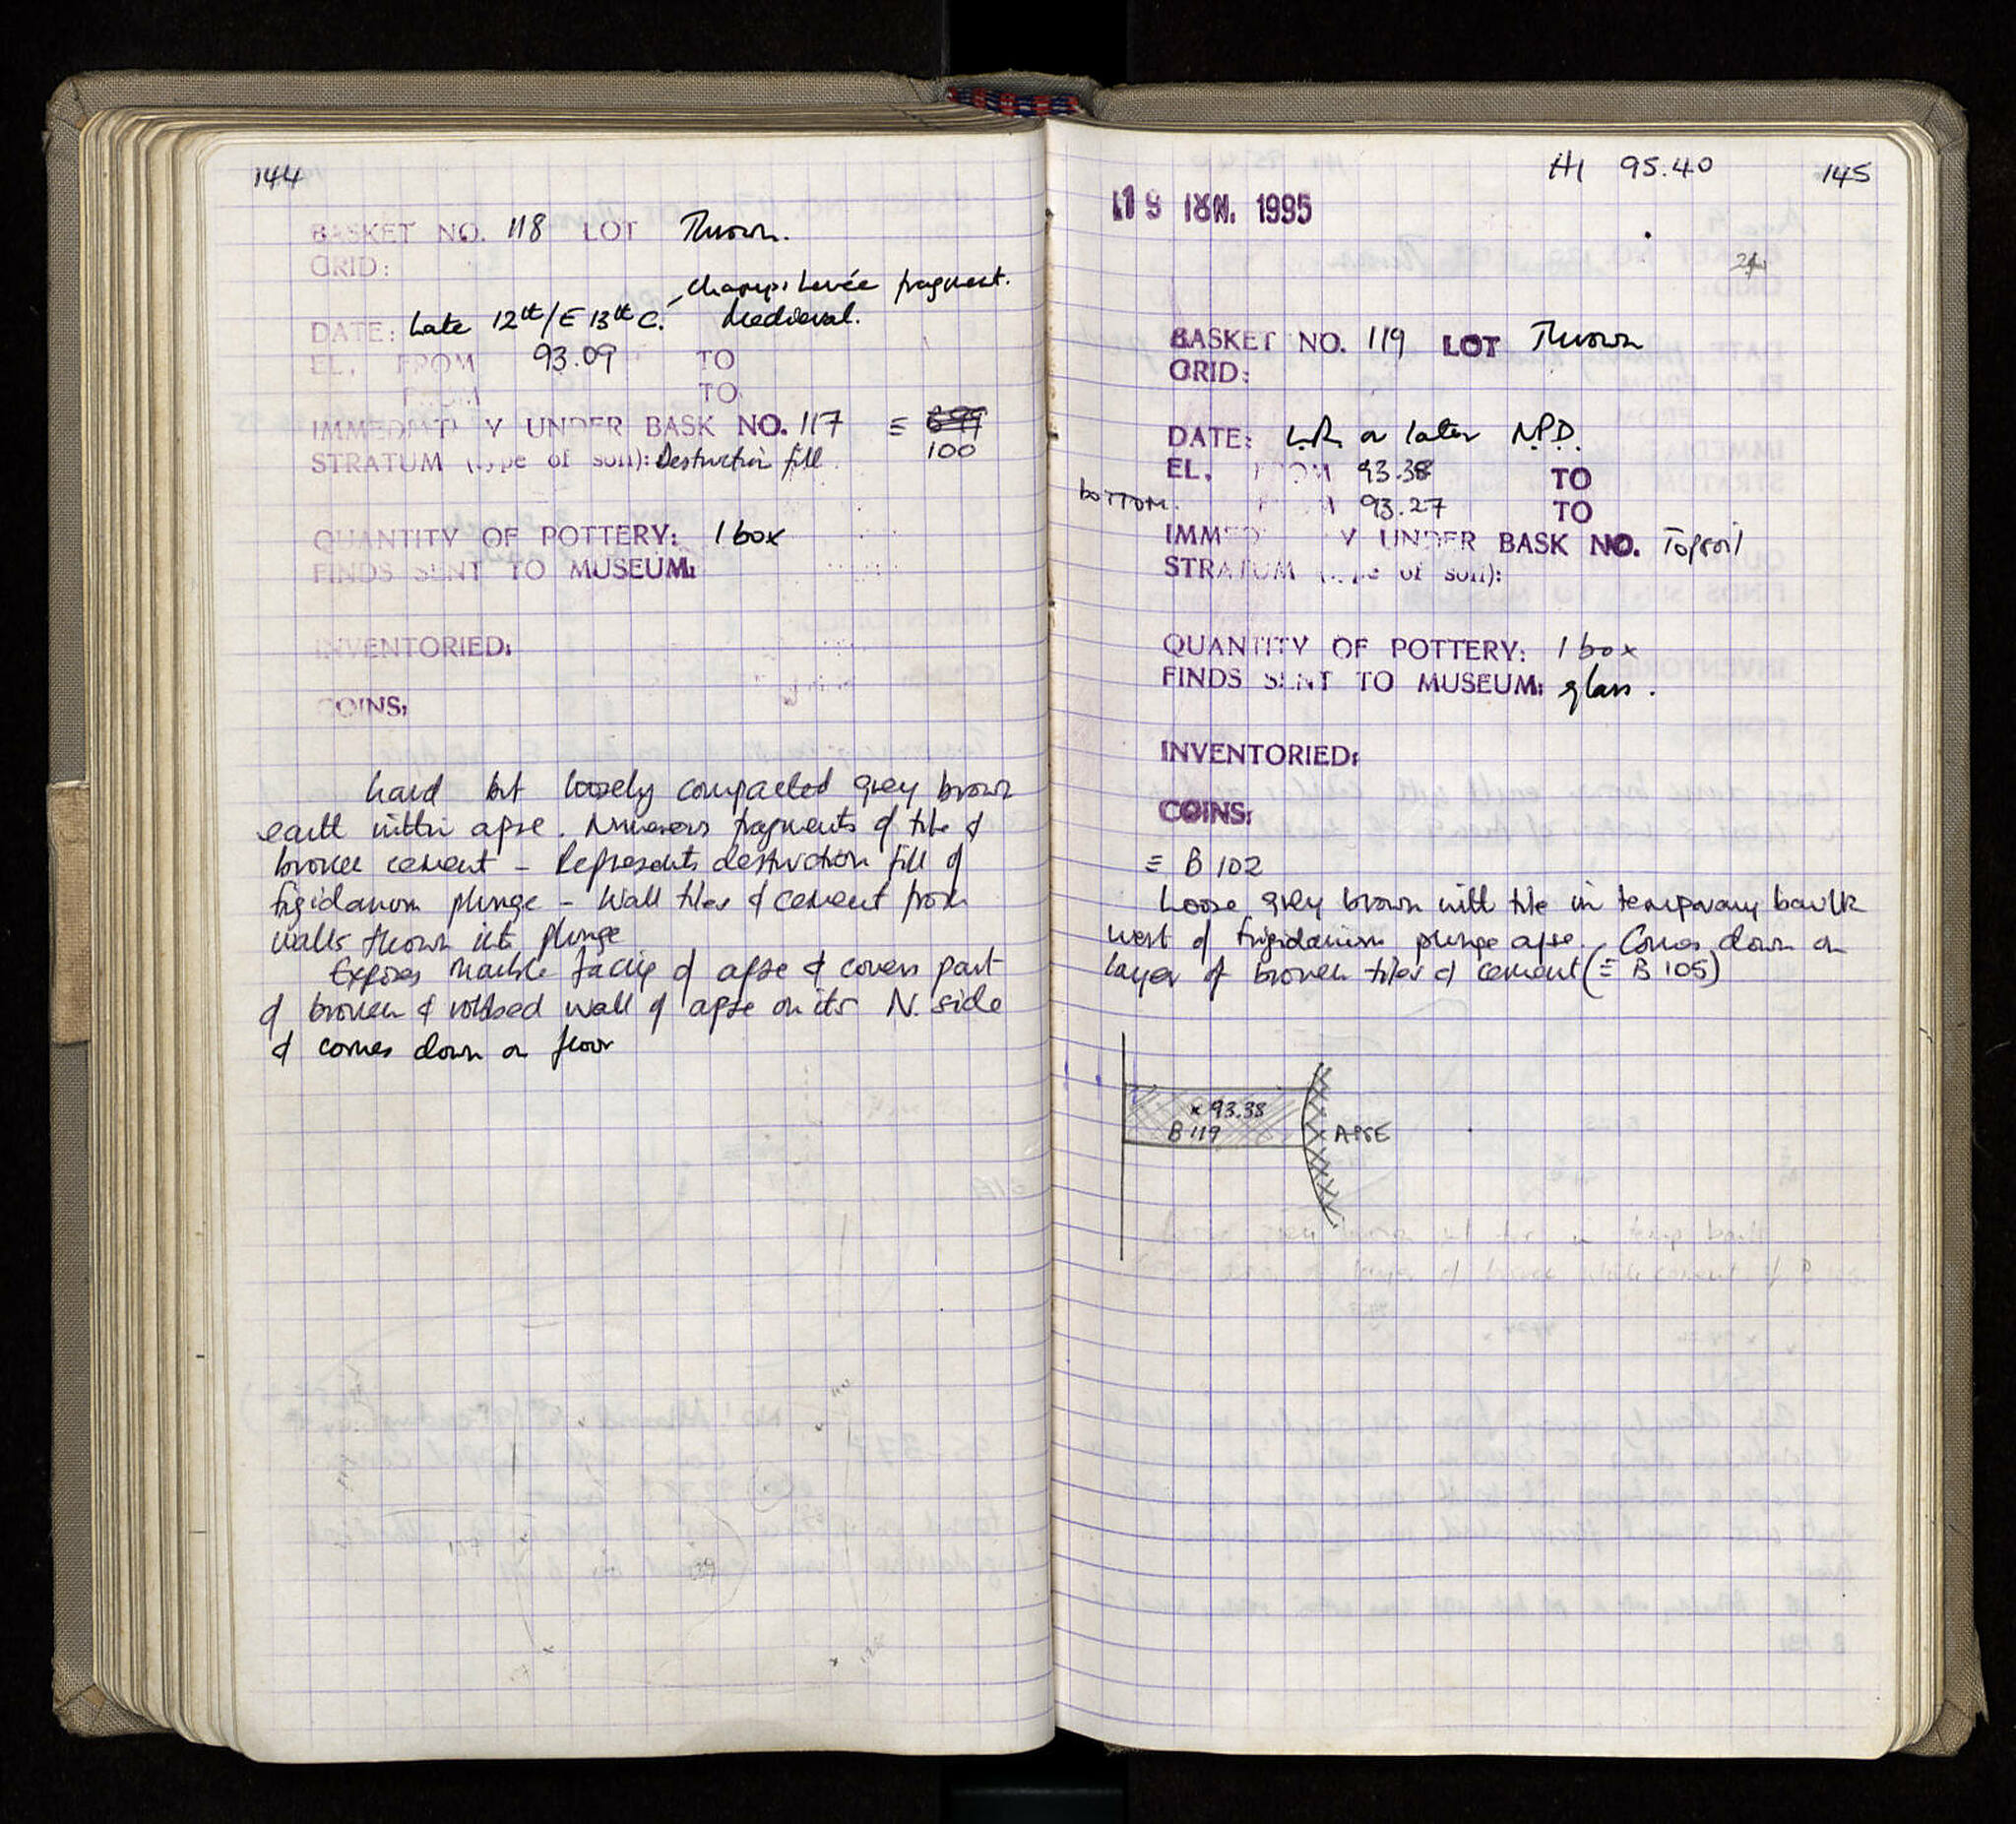 144
BASKET NO. 118 LOT Thrown.
GRID:
Champs Levée fragment.
DATE: Late 12th/E 13th C. Medieval.
EL. FROM 93.09 TO
FROM TO
IMMEDIATELY UNDER BASK NO. 117 ≡ B 99
STRATUM (type of soil): Destruction fill 100
QUANTITY OF POTTERY: 1 box
FINDS SENT TO MUSEUM:
INVENTORIED:
COINS:
hard but loosely compacted grey brown
earth within apse. Numerous fragments of tile &
broken cement - Represents destruction fill of
frigidarium plunge - Wall tiles & cement from
walls thrown into plunge
Exposes marble facing of apse & covers part
of broken & robbed wall of apse on its N. side
& comes down on floor
H1 95.40 145
19 JUN. 1995
BASKET NO. 119 LOT Thrown
GRID:
DATE: LR or later N.P.D.
EL. FROM 93.38 TO
bottom. FROM 93.27 TO
IMMEDIATELY UNDER BASK NO. Topsoil
STRATUM (type of soil):
QUANTITY OF POTTERY: 1 box
FINDS SENT TO MUSEUM: glass.
INVENTORIED:
COINS:
≡ B 102
Loose grey brown with tile in temporary baulk
west of frigidarium plunge apse. Comes down on
layer of broken tiles & cement (≡ B 105)
x 93.38
B 119 APSE